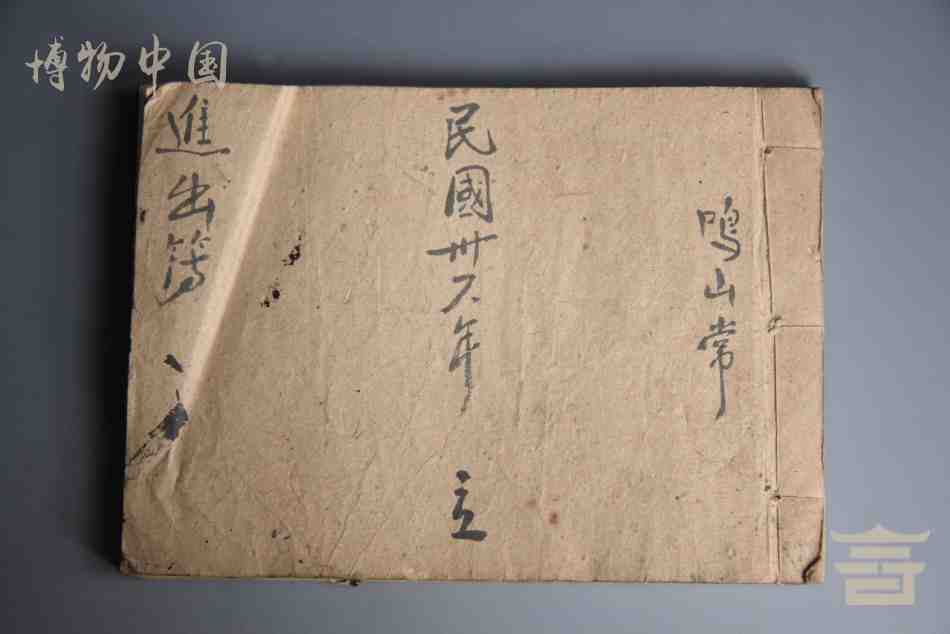 博物中国
鳴山常
民國卅六年 立
進出簿